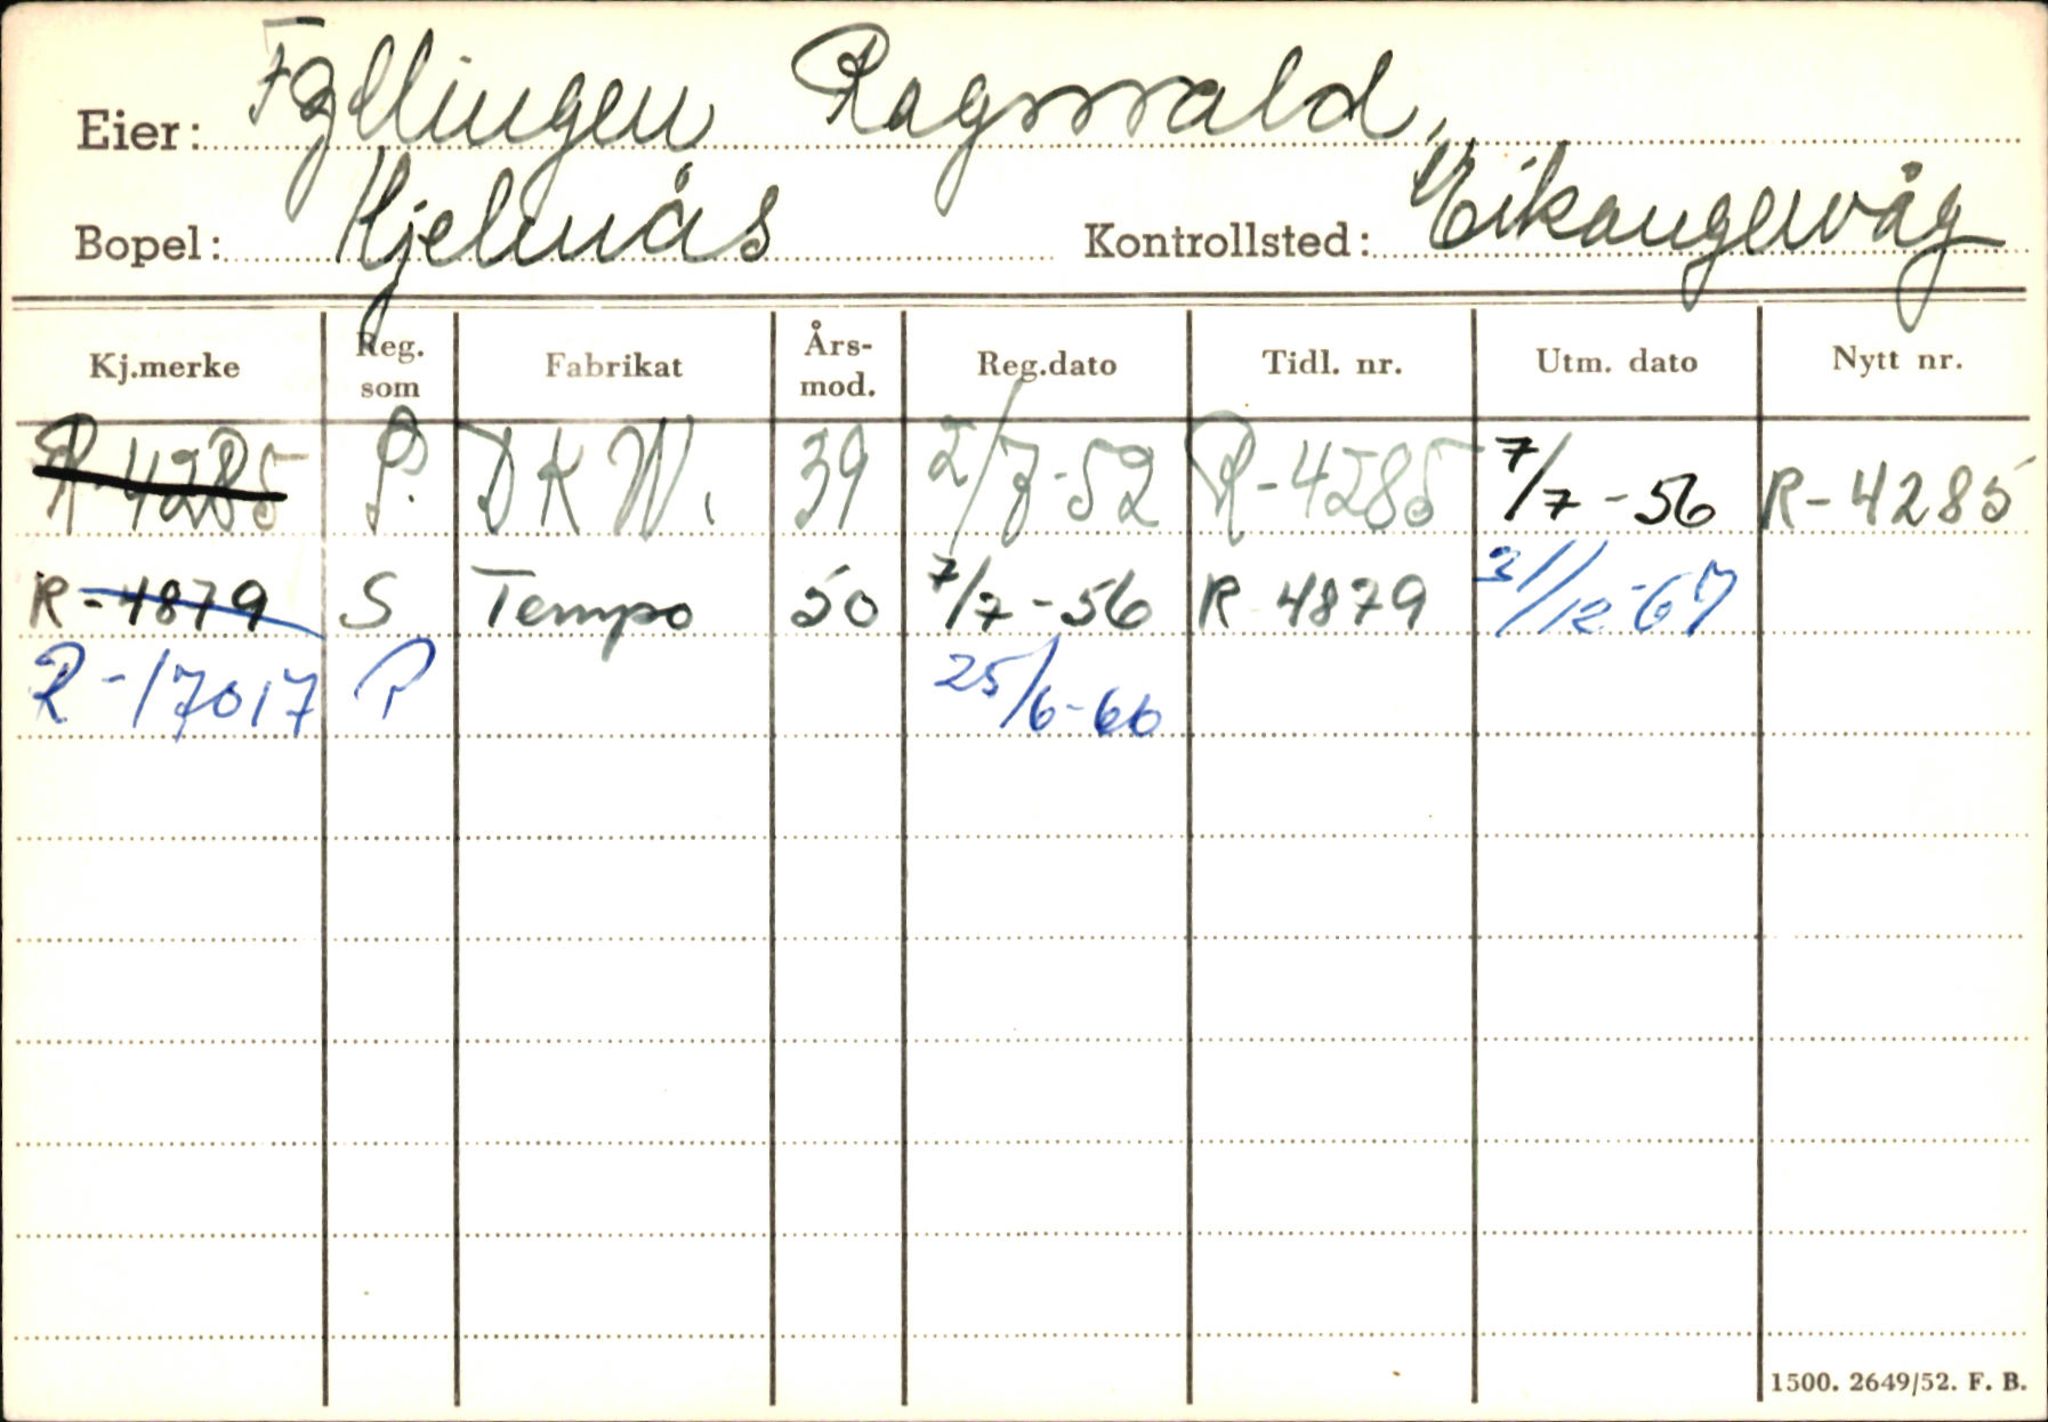 Eier: Fyllingen Ragnvald,
Bopel: Kjelnås Kontrollsted: Eikangervåg
Kj.merke Reg. som Fabrikat Års-mod. Reg.dato Tidl. nr. Utm. dato Nytt nr.
R-4285 P. DKW. 39 2/7-52 R-4285 7/7-56 R-4285
R-4879 S Tempo 50 7/7-56 R-4879 31/12-67
R-17017 P 25/6-66
1500. 2649/52. F. B.